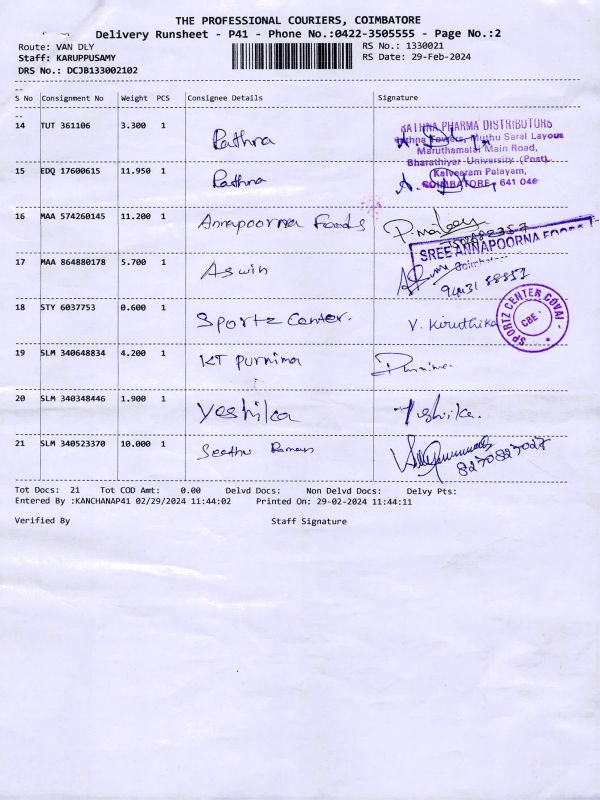 THE PROFESSIONAL COURIERS, COIMBATORE
Delivery Runsheet - P41 - Phone No.:0422-3505555 - Page No.:2
Route: VAN DLY
RS No.: 1330021
Staff: KARUPPUSAMY
RS Date: 29-Feb-2024
DRS No.: DCJB133002102
S No Consignment No Weight PCS Consignee Details Signature
14 TUT 361106 3.300 1 Rathna
RATHNA PHARMA DISTRIBUTORS
Rathna Towers, Muthu Saral Layout
Maruthamalai Main Road,
Bharathiyar University (Post),
Kalveeram Palayam,
COIMBATORE - 641 046
15 EDQ 17600615 11.950 1 Rathna
16 MAA 574260145 11.200 1 Annapoorna Foods
SREE ANNAPOORNA FOODS
Coimbatore
17 MAA 864880178 5.700 1 Aswin
18 STY 6037753 0.600 1 Sportz Center. V. Kiruthika
SPORTZ CENTER COVAI
CBE
19 SLM 340648834 4.200 1 KT Purnima
20 SLM 340348446 1.900 1 Yeshika Yeshika.
21 SLM 340523370 10.000 1 Seetha Raman
8270827027
Tot Docs: 21 Tot COD Amt: 0.00 Delvd Docs: Non Delvd Docs: Delvy Pts:
Entered By :KANCHANAP41 02/29/2024 11:44:02 Printed On: 29-02-2024 11:44:11
Verified By Staff Signature